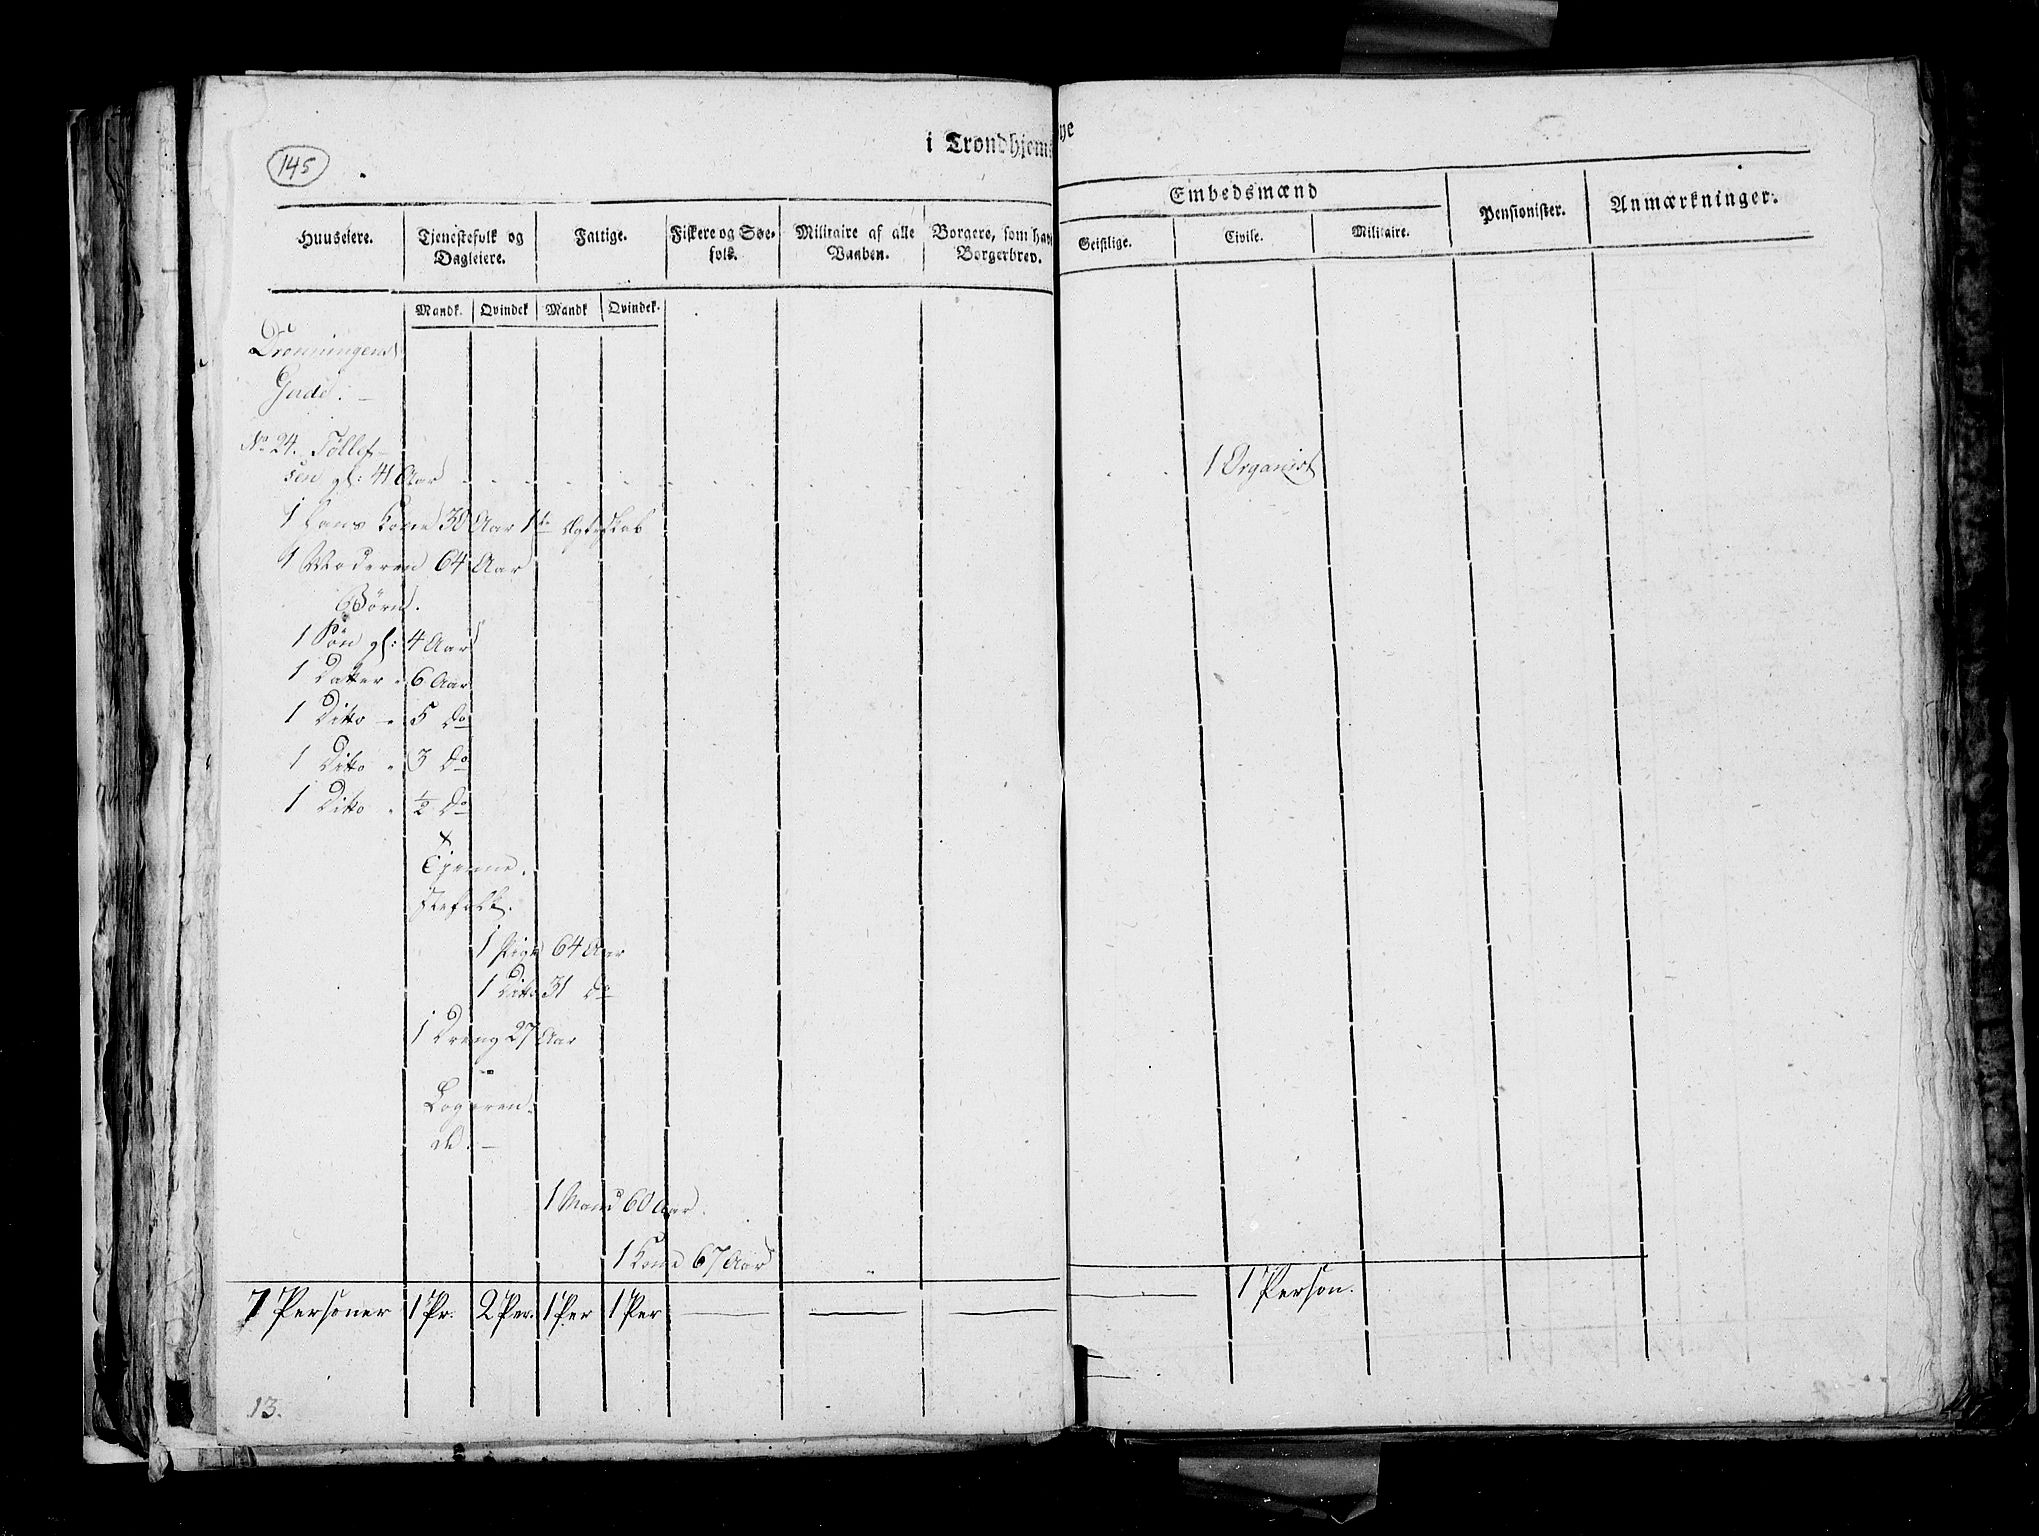 145
i Trondhjems Bye
Huuseiere.
Tjenestefolk og Dagleiere.
Fattige.
Fiskere og Søe-folk.
Militaire af alle Vaaben.
Borgere, som have Borgerbrev.
Embedsmænd
Geistlige.
Civile.
Militaire.
Pensionister.
Anmærkninger.
Mandk. Qvindek Mandk Qvindek.
Dronningens
Gade. —
No 24. Tøllef-
sen gl: 41 Aar
1 Organist
1 Hans Kone 30 Aar 1te Ægteskab
1 Moderen 64 Aar
Børn.
1 Søn gl: 4 Aar
1 Datter " 6 Aar
1 Ditto " 5 Do
1 Ditto " 3 Do
1 Ditto " 1/2 Do
Tjenne-
stefolk.
1 Pige 64 Aar
1 Ditto 31 Do
1 Dreng 27 Aar
Logeren-
de. —
1 Mand 60 Aar.
1 Kone 67 Aar
7 Personer 1 Pr. 2 Per. 1 Per 1 Per — — — — 1 Person.
13.